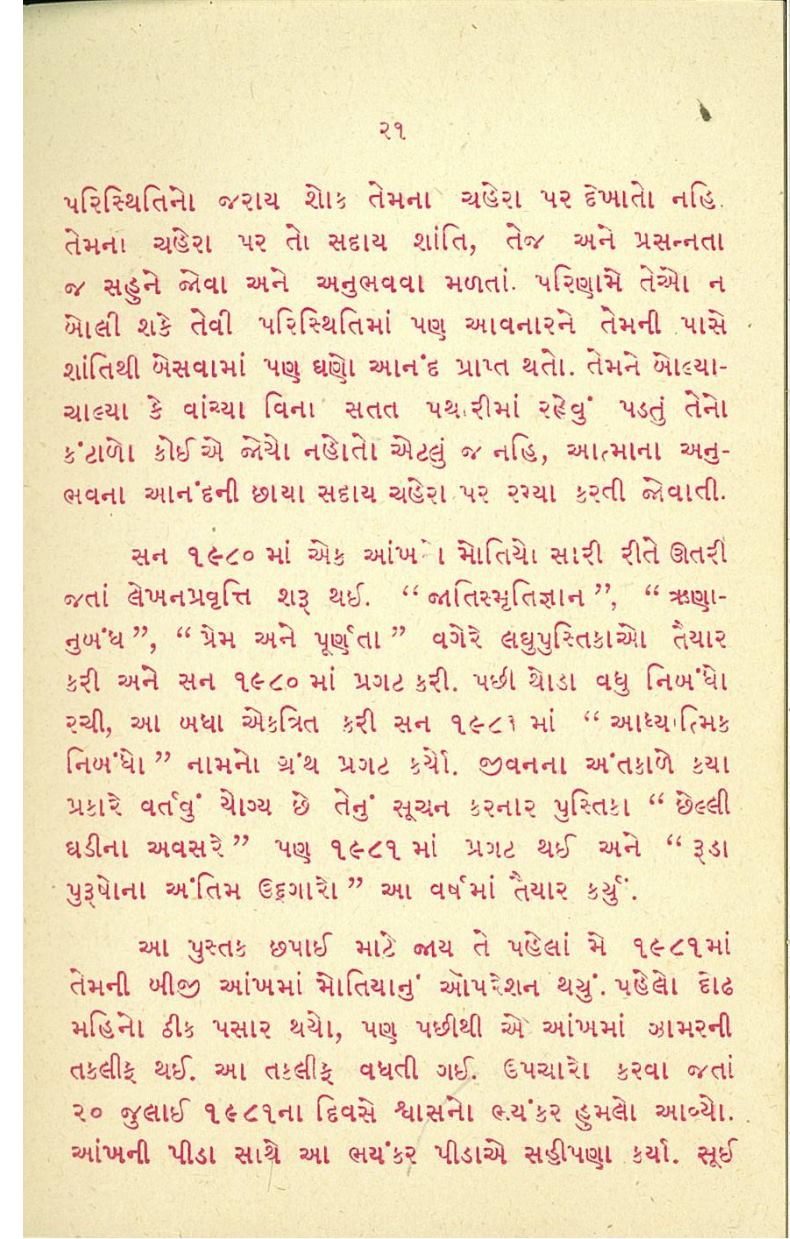 ૨૧
પરિસ્થિતિનો જરાય શોક તેમના ચહેરા પર દેખાતો નહિ.
તેમના ચહેરા પર તો સદાય શાંતિ, તેજ અને પ્રસન્નતા
જ સહુને જોવા અને અનુભવવા મળતાં. પરિણામે તેઓ ન
બોલી શકે તેવી પરિસ્થિતિમાં પણ આવનારને તેમની પાસે
શાંતિથી બેસવામાં પણ ઘણો આનંદ પ્રાપ્ત થતો. તેમને બોલ્યા-
ચાલ્યા કે વાંચ્યા વિના સતત પથારીમાં રહેવું પડતું તેનો
કંટાળો કોઈએ જોયો નહોતો એટલું જ નહિ, આત્માના અનુ-
ભવના આનંદની છાયા સદાય ચહેરા પર રમ્યા કરતી જોવાતી.
સન ૧૯૮૦ માં એક આંખનો મોતિયો સારી રીતે ઊતરી
જતાં લેખનપ્રવૃત્તિ શરૂ થઈ. “જાતિસ્મૃતિજ્ઞાન”, “ઋણા-
નુબંધ”, “પ્રેમ અને પૂર્ણતા” વગેરે લઘુપુસ્તિકાઓ તૈયાર
કરી અને સન ૧૯૮૦ માં પ્રગટ કરી. પછી થોડા વધુ નિબંધો
રચી, આ બધા એકત્રિત કરી સન ૧૯૮૧ માં “આધ્યાત્મિક
નિબંધો” નામનો ગ્રંથ પ્રગટ કર્યો. જીવનના અંતકાળે કયા
પ્રકારે વર્તવું યોગ્ય છે તેનું સૂચન કરનાર પુસ્તિકા “છેલ્લી
ઘડીના અવસરે” પણ ૧૯૮૧ માં પ્રગટ થઈ અને “રૂડા
પુરૂષોના અંતિમ ઉદ્દગારો” આ વર્ષમાં તૈયાર કર્યું.
આ પુસ્તક છપાઈ માટે જાય તે પહેલાં મે ૧૯૮૧માં
તેમની બીજી આંખમાં મોતિયાનું ઑપરેશન થયું. પહેલો દોઢ
મહિનો ઠીક પસાર થયો, પણ પછીથી એ આંખમાં ઝામરની
તકલીફ થઈ. આ તકલીફ વધતી ગઈ. ઉપચારો કરવા જતાં
૨૦ જુલાઈ ૧૯૮૧ના દિવસે શ્વાસનો ભયંકર હુમલો આવ્યો.
આંખની પીડા સાથે આ ભયંકર પીડાએ સહીપણા કર્યા. સૂઈ